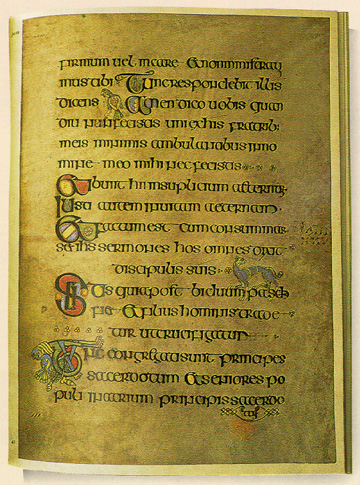 firmum uel incarcere & non ministraui
mus tibi Tunc respondebit illis
dicens Amen dico uobis quam
diu non fecistis uni exhis fratrib:
meis minimis in no
mine meo mihi nec fecistis
Et ibunt hii in suplicium aeternum
Iusti autem in uitam aeternam
Et factum est cum consummas
set ihs sermones hos omnes dixit
discipulis suis
Scitis quia post biduum pasch
fiet & filius hominis trade
tur ut crucifigatur
Tunc congregati sunt principes
sacerdotum & seniores po
puli in atrium principis sacerdo